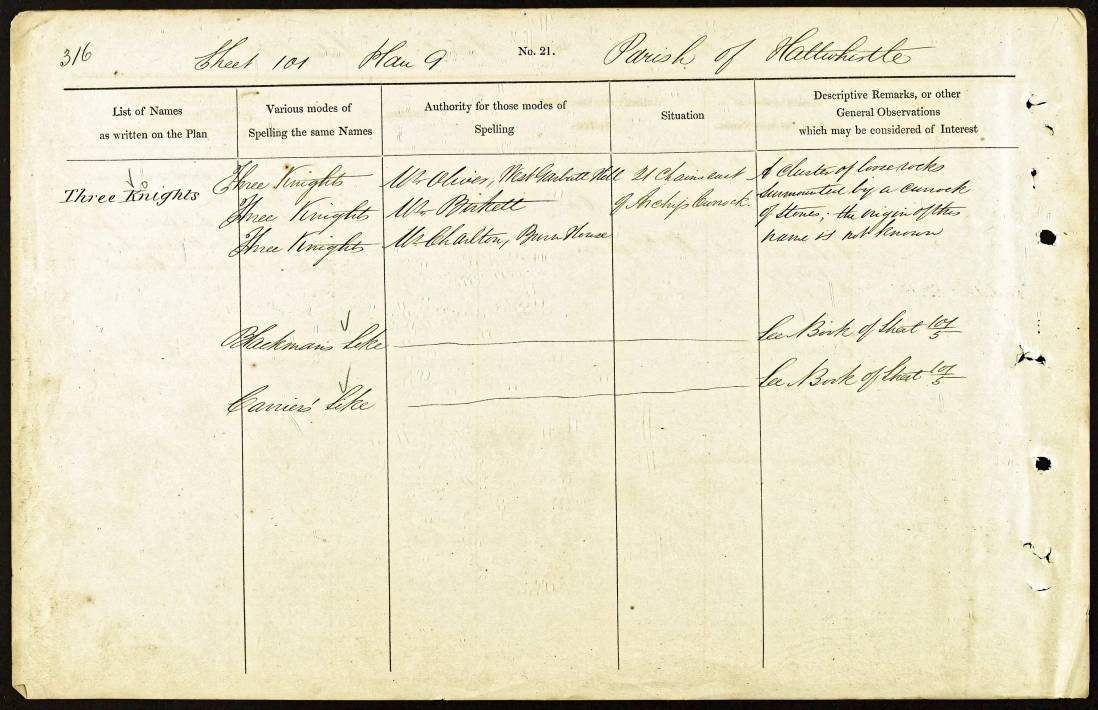 316 Sheet 101 Plan 9 No. 21. Parish of Haltwhistle
List of Names
as written on the Plan
Various modes of
Spelling the same Names
Authority for those modes of
Spelling
Situation
Descriptive Remarks, or other
General Observations
which may be considered of Interest
Three Knights
Three Knights
Three Knights
Three Knights
Mr Oliver, West Garbutt Hill
Mr Birkett
Mr Charlton, Burn House
21 Chains east
of Archy's Currock.
A cluster of loose rocks
surmounted by a currock
of Stones; the origin of this
name is not known
Blackman's Sike See N. Book of Sheet 101/5
Carriers' Sike See N. Book of Sheet 101/5